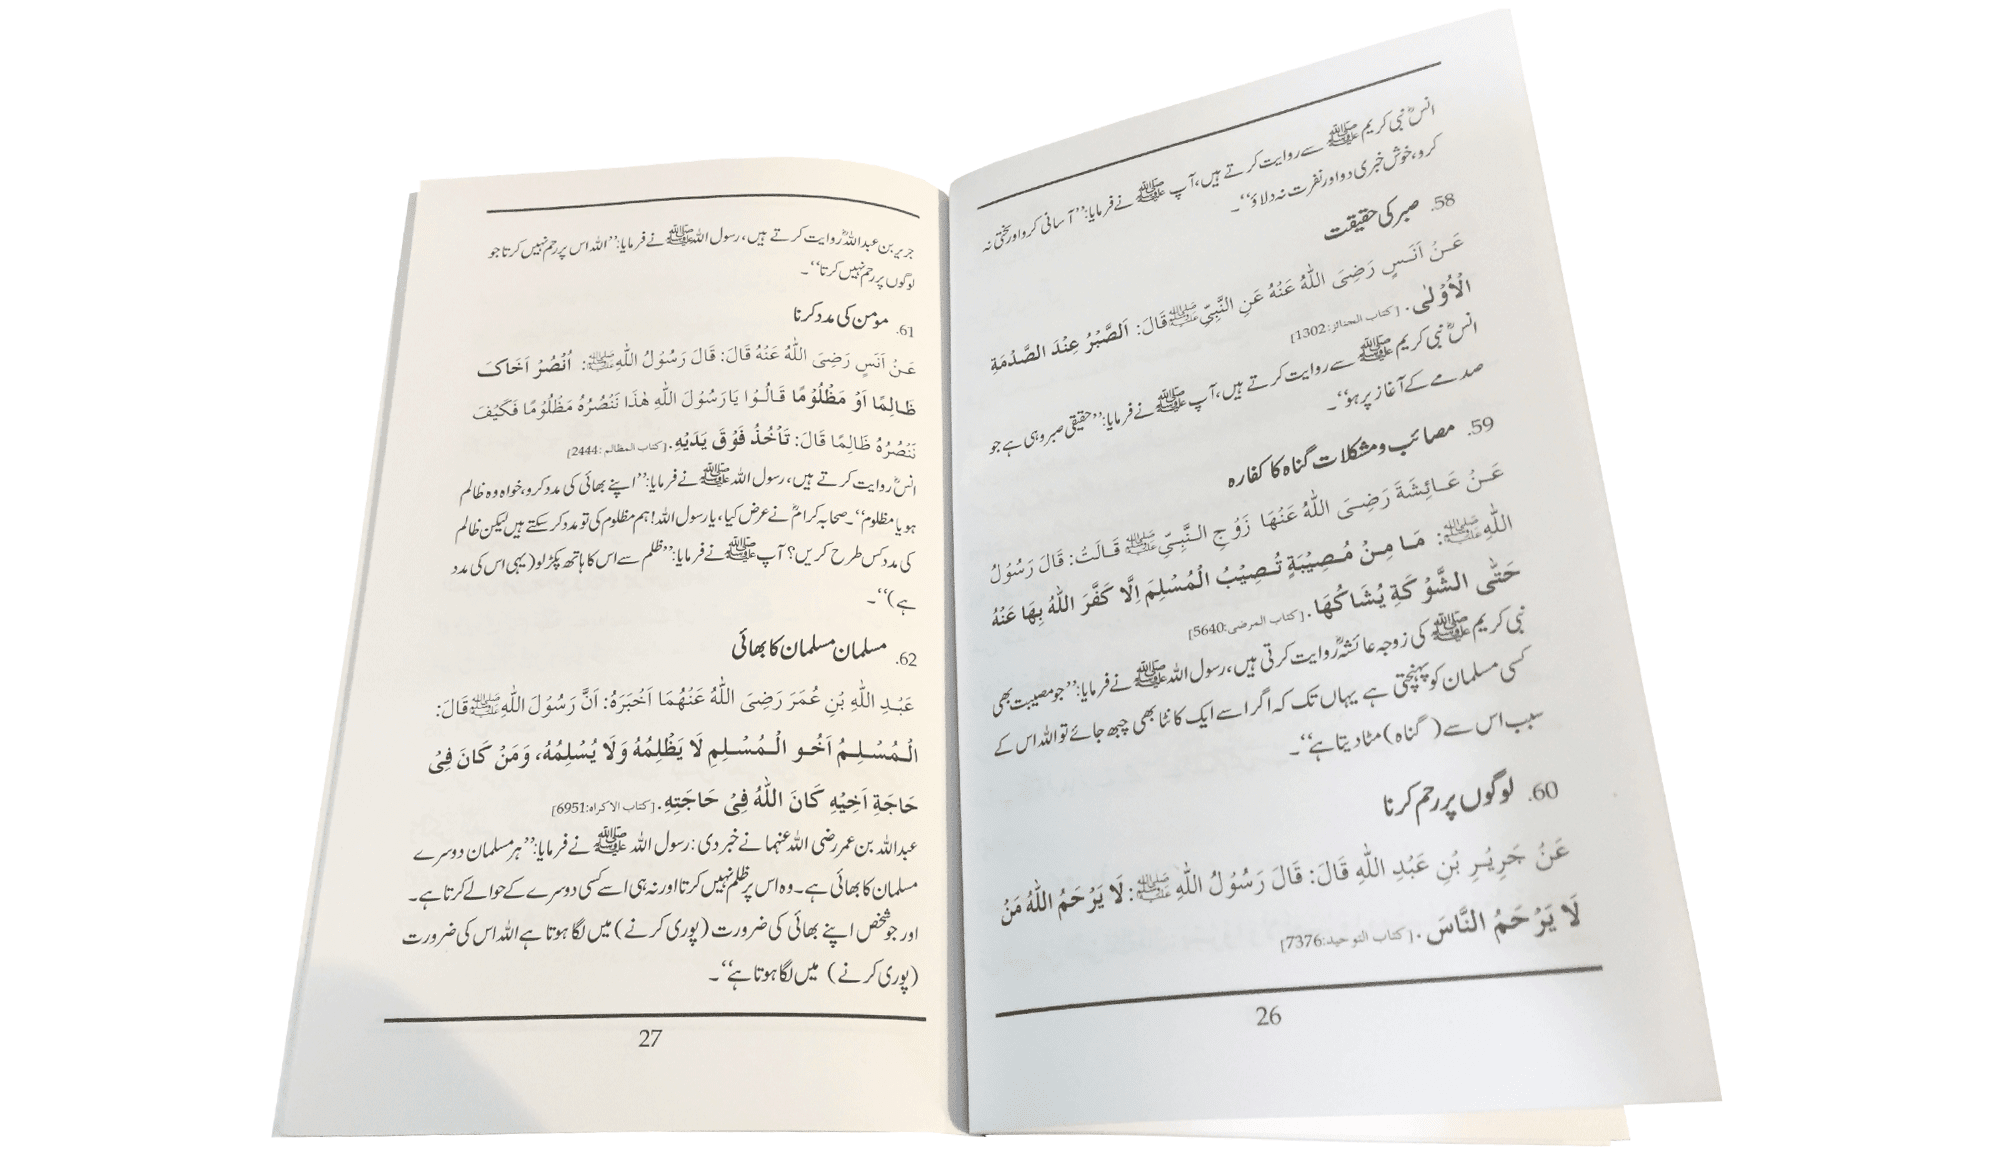 انسؓ نبی کریم ﷺ سے روایت کرتے ہیں، آپ ﷺ نے فرمایا: ’’آسانی کرو اور سختی نہ
کرو، خوش خبری دو اور نفرت نہ دلاؤ‘‘۔
58. صبر کی حقیقت
عَنْ اَنَسٍ رَضِیَ اللّٰہُ عَنْہُ عَنِ النَّبِیِّ ﷺ قَالَ: اَلصَّبْرُ عِنْدَ الصَّدْمَۃِ
الْاُوْلٰی. [کتاب الجنائز:1302]
انسؓ نبی کریم ﷺ سے روایت کرتے ہیں، آپ ﷺ نے فرمایا: ’’حقیقی صبر وہی ہے جو
صدمے کے آغاز پر ہو‘‘۔
59. مصائب و مشکلات گناہ کا کفارہ
عَنْ عَائِشَۃَ رَضِیَ اللّٰہُ عَنْہَا زَوْجِ النَّبِیِّ ﷺ قَالَتْ: قَالَ رَسُوْلُ
اللّٰہِ ﷺ: مَا مِنْ مُصِیْبَۃٍ تُصِیْبُ الْمُسْلِمَ اِلَّا کَفَّرَ اللّٰہُ بِہَا عَنْہُ
حَتّٰی الشَّوْکَۃِ یُشَاکُہَا. [کتاب المرضی:5640]
نبی کریم ﷺ کی زوجہ عائشہؓ روایت کرتی ہیں، رسول اللہ ﷺ نے فرمایا: ’’جو مصیبت بھی
کسی مسلمان کو پہنچتی ہے یہاں تک کہ اگر اسے ایک کانٹا بھی چبھ جائے تو اللہ اس کے
سبب اس سے (گناہ) مٹا دیتا ہے‘‘۔
60. لوگوں پر رحم کرنا
عَنْ جَرِیْرِ بْنِ عَبْدِ اللّٰہِ قَالَ: قَالَ رَسُوْلُ اللّٰہِ ﷺ: لَا یَرْحَمُ اللّٰہُ مَنْ
لَا یَرْحَمُ النَّاسَ. [کتاب التوحید:7376]
26
جریر بن عبداللہؓ روایت کرتے ہیں، رسول اللہ ﷺ نے فرمایا: ’’اللہ اس پر رحم نہیں کرتا جو
لوگوں پر رحم نہیں کرتا‘‘۔
61. مومن کی مدد کرنا
عَنْ اَنَسٍ رَضِیَ اللّٰہُ عَنْہُ قَالَ: قَالَ رَسُوْلُ اللّٰہِ ﷺ: اُنْصُرْ اَخَاکَ
ظَالِمًا اَوْ مَظْلُوْمًا قَالُوْا یَارَسُوْلَ اللّٰہِ ھٰذَا نَنْصُرُہٗ مَظْلُوْمًا فَکَیْفَ
نَنْصُرُہٗ ظَالِمًا قَالَ: تَاْخُذُ فَوْقَ یَدَیْہِ. [کتاب المظالم:2444]
انسؓ روایت کرتے ہیں، رسول اللہ ﷺ نے فرمایا: ’’اپنے بھائی کی مدد کرو، خواہ وہ ظالم
ہو یا مظلوم‘‘۔ صحابہ کرامؓ نے عرض کیا، یا رسول اللہ! ہم مظلوم کی تو مدد کرسکتے ہیں لیکن ظالم
کی مدد کس طرح کریں؟ آپ ﷺ نے فرمایا: ’’ظلم سے اس کا ہاتھ پکڑ لو (یہی اس کی مدد
ہے)‘‘۔
62. مسلمان مسلمان کا بھائی
عَبْدِ اللّٰہِ بْنِ عُمَرَ رَضِیَ اللّٰہُ عَنْہُمَا اَخْبَرَہٗ: اَنَّ رَسُوْلَ اللّٰہِ ﷺ قَالَ:
الْمُسْلِمُ اَخُو الْمُسْلِمِ لَا یَظْلِمُہٗ وَلَا یُسْلِمُہٗ، وَمَنْ کَانَ فِیْ
حَاجَۃِ اَخِیْہِ کَانَ اللّٰہُ فِیْ حَاجَتِہٖ. [کتاب الاکراہ:6951]
عبداللہ بن عمر رضی اللہ عنہما نے خبر دی: رسول اللہ ﷺ نے فرمایا: ’’ہر مسلمان دوسرے
مسلمان کا بھائی ہے۔ وہ اس پر ظلم نہیں کرتا اور نہ ہی اسے کسی دوسرے کے حوالے کرتا ہے۔
اور جو شخص اپنے بھائی کی ضرورت (پوری کرنے) میں لگا ہوتا ہے اللہ اس کی ضرورت
(پوری کرنے) میں لگا ہوتا ہے‘‘۔
27